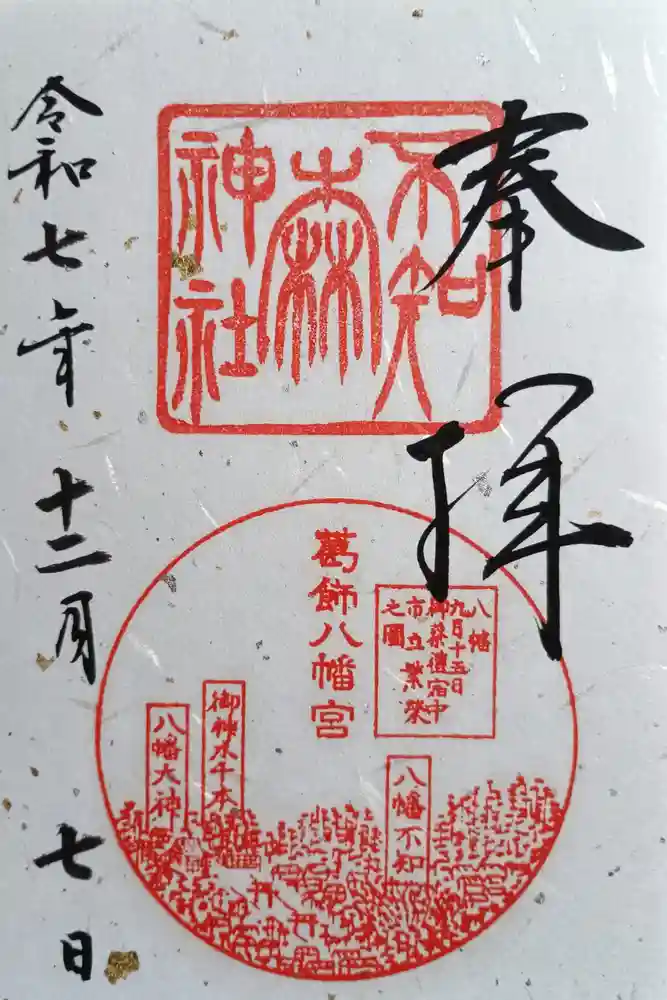 奉拝
不知
森
神社
葛飾八幡宮
八幡
九月十五日
御祭禮宿中
市立繁榮
之圖
八幡不知
御神木千本
八幡大神
令和七年十二月七日